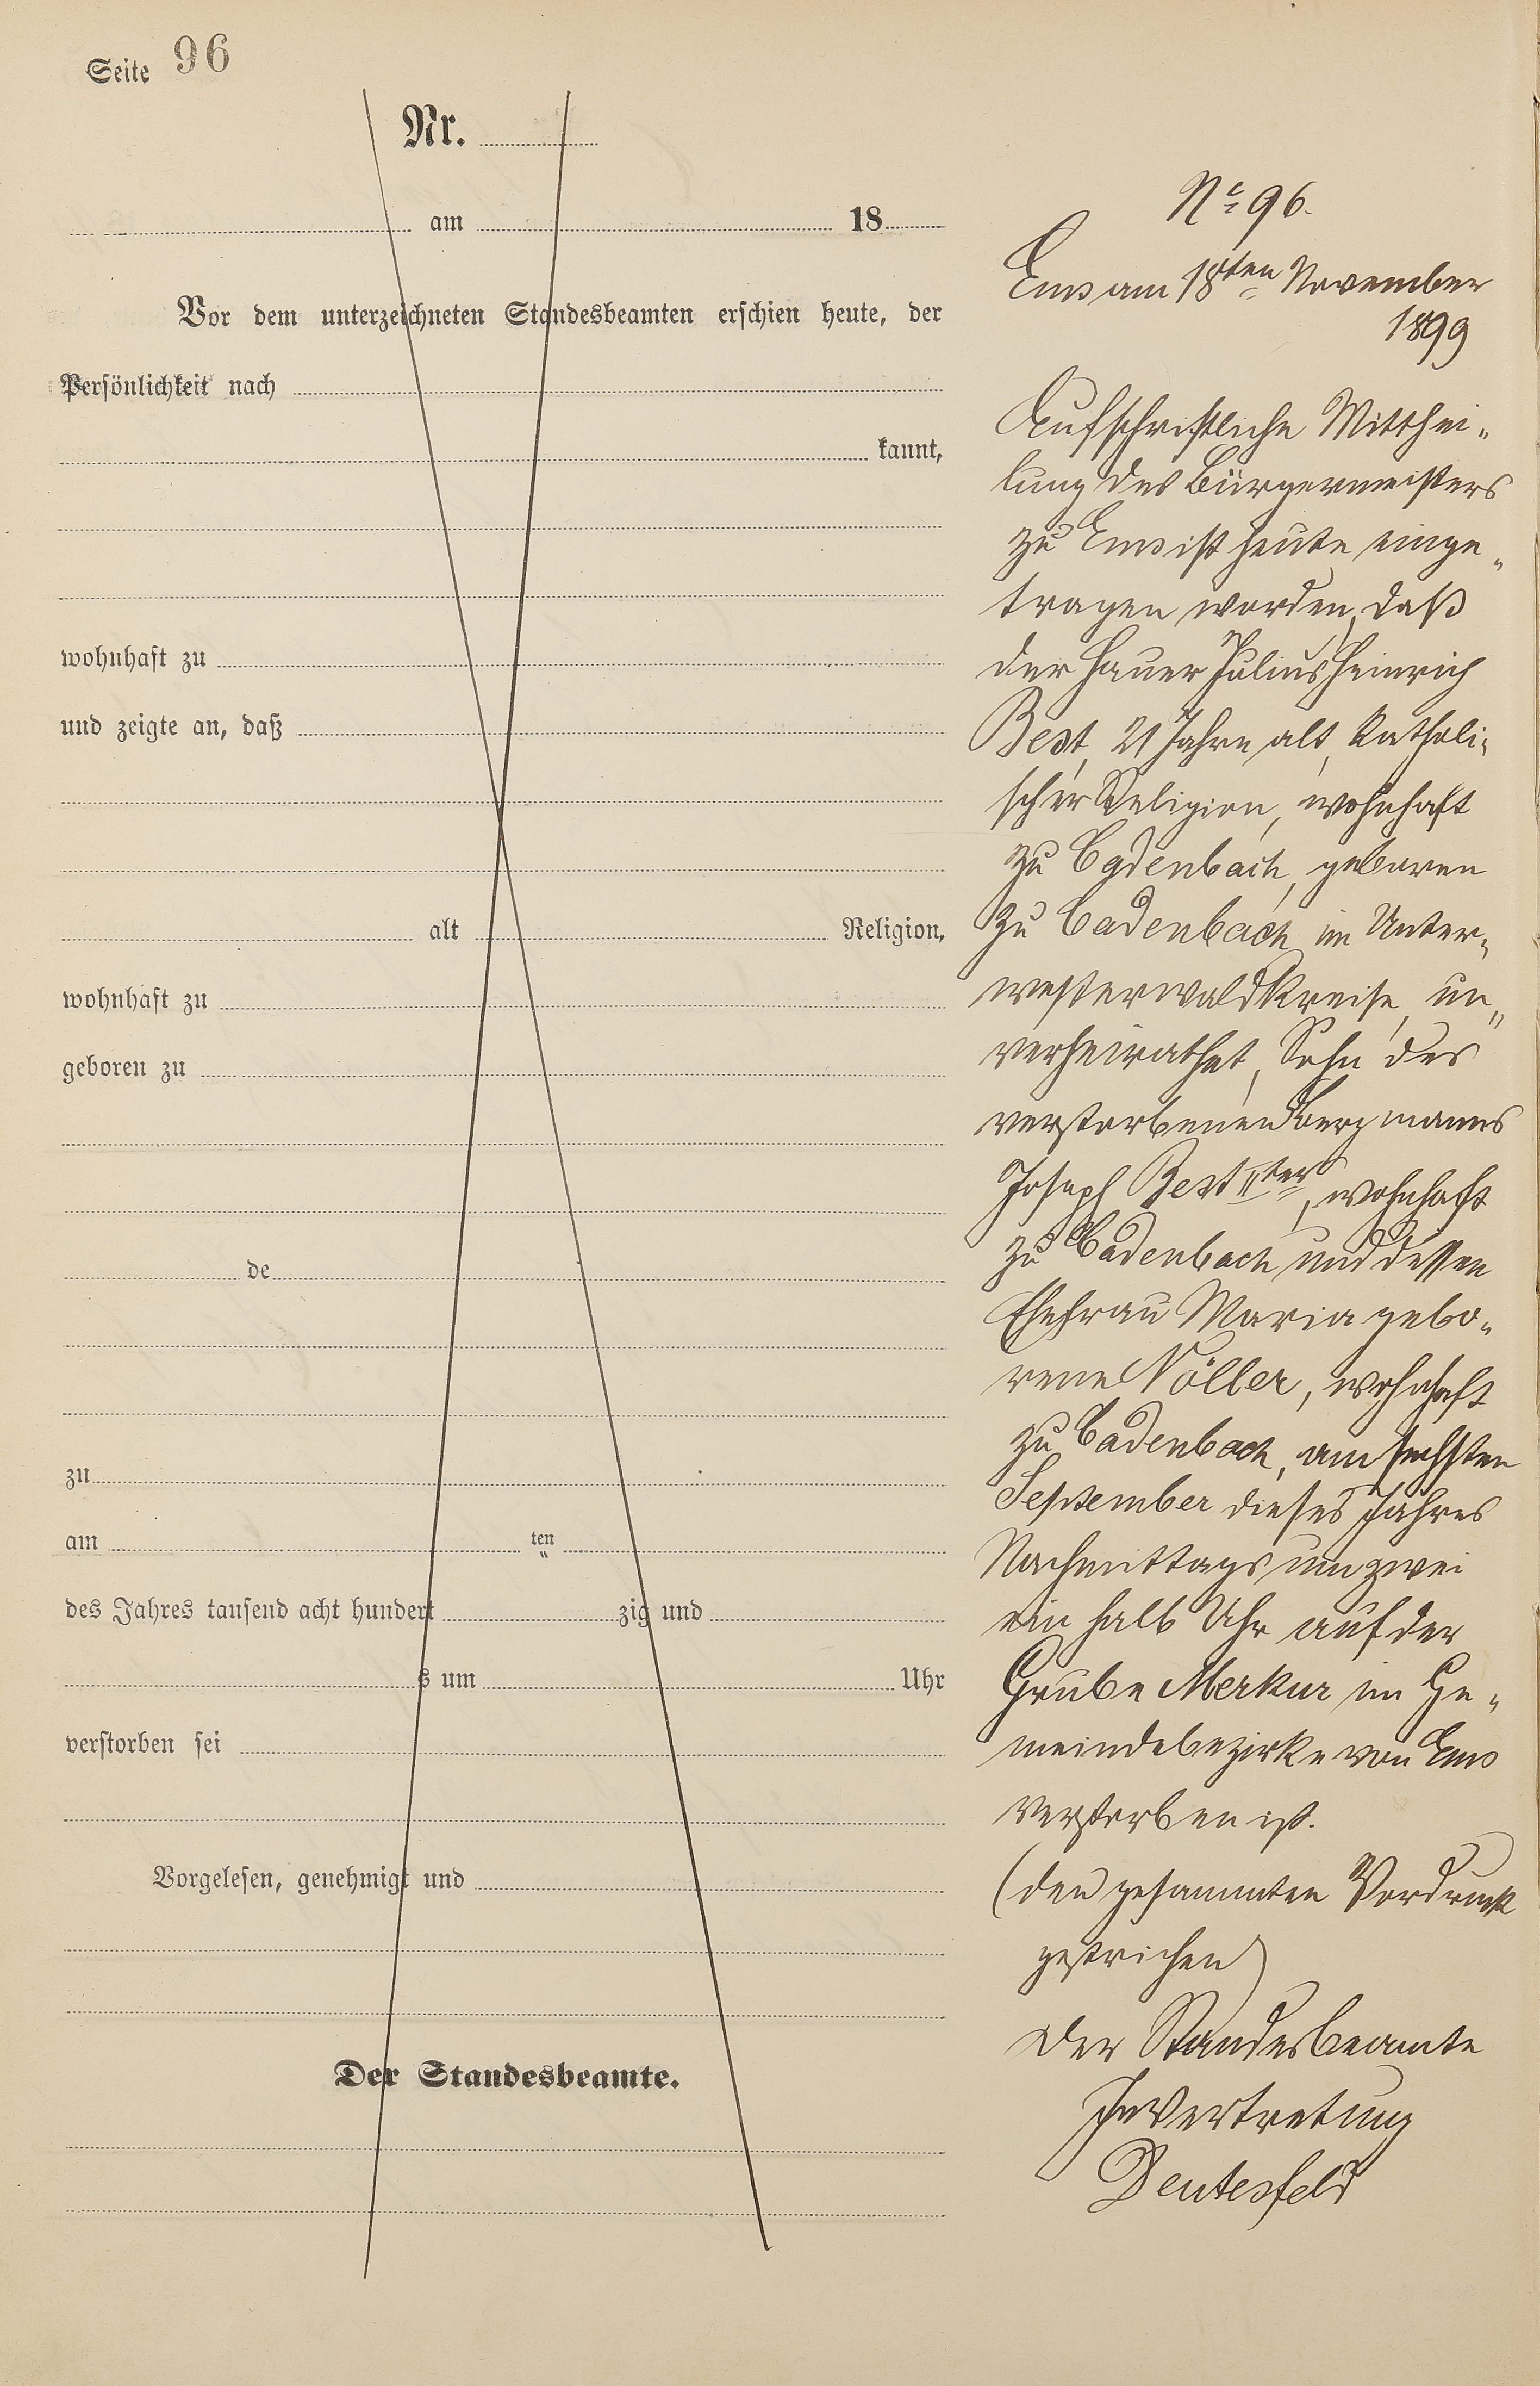 Seite 96
Nr.
am 18
Vor dem unterzeichneten Standesbeamten erschien heute, der
Persönlichkeit nach
kannt,
wohnhaft zu
und zeigte an, daß
alt Religion,
wohnhaft zu
geboren zu
de
zu
am ten
des Jahres tausend acht hundert zig und
s um Uhr
verstorben sei
Vorgelesen, genehmigt und
Der Standesbeamte.
No 96.
Ems am 18ten November
1899
Auf schriftliche Mitthei-
lung des Bürgermeisters
zu Ems ist heute einge-
tragen worden, daß
der Hauer Julius Heinrich
Best, 21 Jahre alt, katholi-
scher Religion, wohnhaft
zu Cadenbach, geboren
zu Cadenbach im Unter-
westerwaldkreise, un-
verheirathet, Sohn des
verstorbenen Bergmanns
Joseph Best IIter, wohnhaft
zu Cadenbach und dessen
Ehefrau Maria gebo-
rene Nöller, wohnhaft
zu Cadenbach, am sechsten
September dieses Jahres
Nachmittags um zwei
ein halb Uhr auf der
Grube Merkur im Ge-
meindebezirke von Ems
verstorben ist.
(den gesammten Vordruck
gestrichen)
Der Standesbeamte
In Vertretung
Deutesfeld